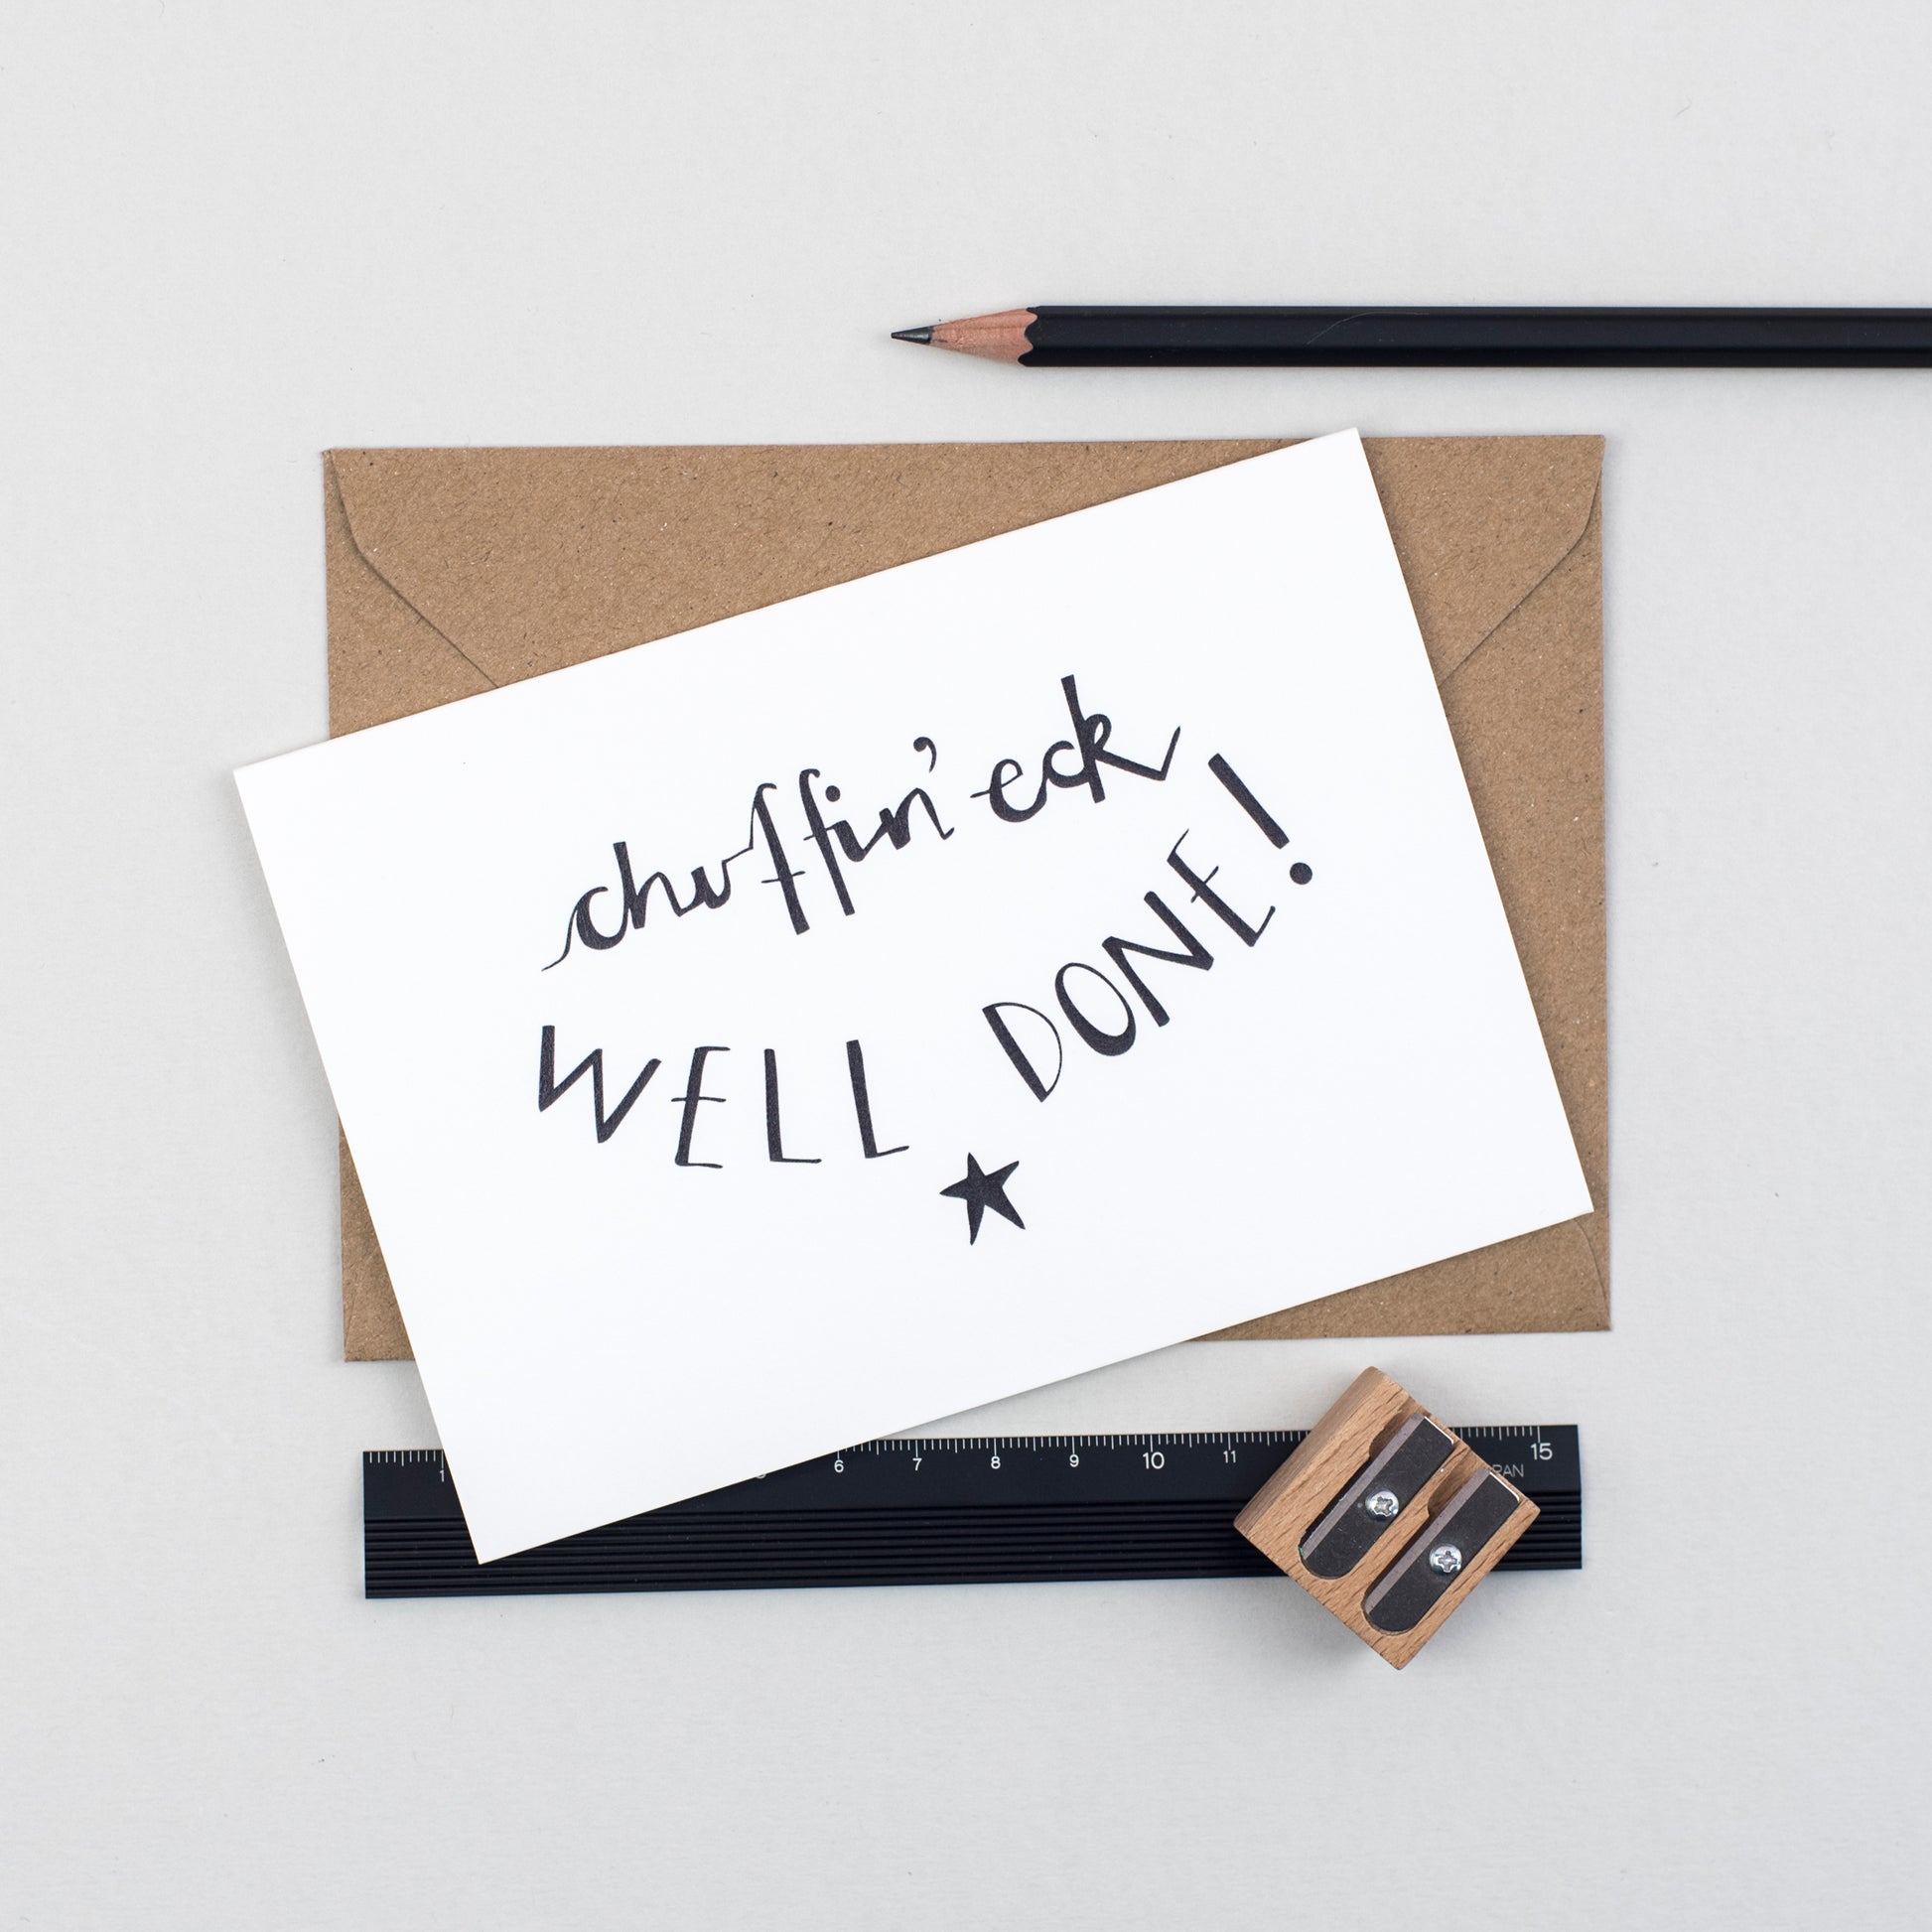 chuffin' eck
WELL DONE!
1 6 7 8 9 10 11 15
PAN